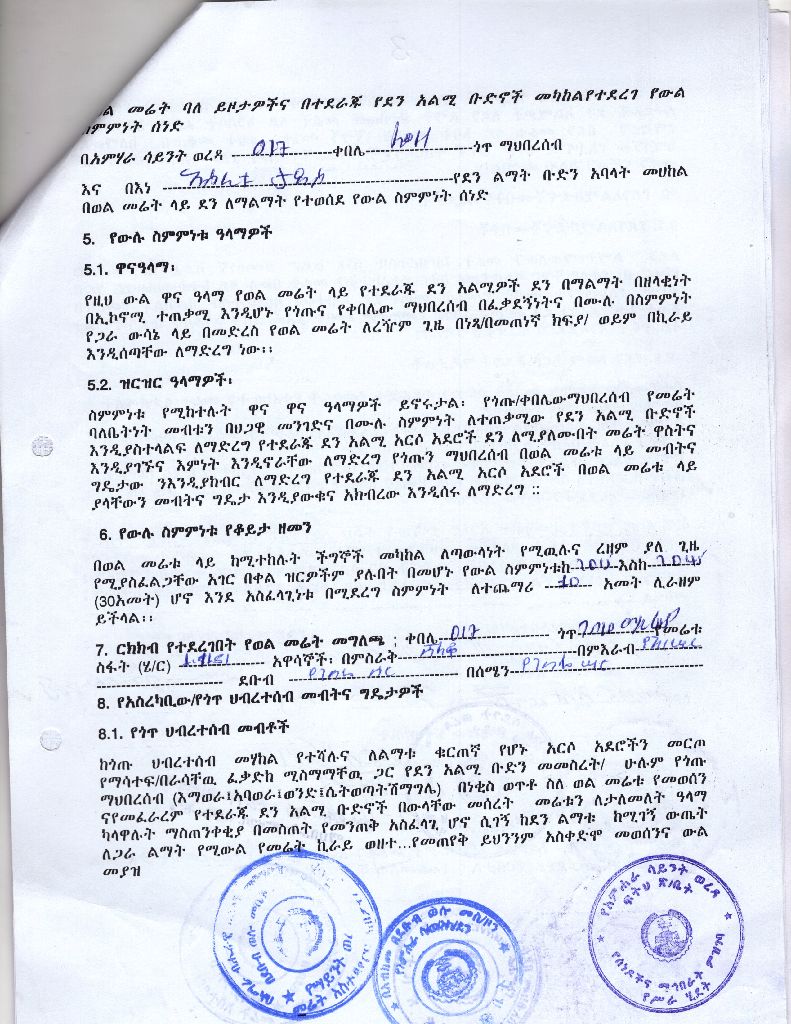 ወል መሬት ባለ ይዞታዎችና በተደራጁ የደን አልሚ ቡድኖች መካከልየተደረገ የውል
ስምምነት ሰነድ
በአምሃራ ሳይንት ወረዳ 017 ቀበሌ ጎጥ ማህበረሰብ
እና በእነ የደን ልማት ቡድን አባላት መሀከል
በወል መሬት ላይ ደን ለማልማት የተወሰደ የውል ስምምነት ሰነድ
5. የውሉ ስምምነቱ ዓላማዎች
5.1. ዋናዓላማ፡
የዚህ ውል ዋና ዓላማ የወል መሬት ላይ የተደራጁ ደን አልሚዎች ደን በማልማት በዘላቂነት
በኢኮኖሚ ተጠቃሚ እንዲሆኑ የጎጡና የቀበሌው ማህበረሰብ በፈቃደኝነትና በሙሉ በስምምነት
የጋራ ውሳኔ ላይ በመድረስ የወል መሬት ለረዥም ጊዜ በነጻ/በመጠነኛ ክፍያ/ ወይም በኪራይ
እንዲሰጣቸው ለማድረግ ነው፡፡
5.2. ዝርዝር ዓላማዎች፡
ስምምነቱ የሚከተሉት ዋና ዋና ዓላማዎች ይኖሩታል፡ የጎጡ/ቀበሌውማህበረሰብ የመሬት
ባለቤትነት መብቱን በህጋዊ መንገድና በሙሉ ስምምነት ለተጠቃሚው የደን አልሚ ቡድኖች
እንዲያስተላልፍ ለማድረግ የተደራጁ ደን አልሚ አርሶ አደሮች ደን ለሚያለሙበት መሬት ዋስትና
እንዲያገኙና እምነት እንዲኖራቸው ለማድረግ የጎጡን ማህበረሰብ በወል መሬቱ ላይ መብትና
ግዴታው ንእንዲያከብር ለማድረግ የተደራጁ ደን አልሚ አርሶ አደሮች በወል መሬቱ ላይ
ያላቸውን መብትና ግዴታ እንዲያውቁና አክብረው እንዲሰሩ ለማድረግ ::
6. የውሉ ስምምነቱ የቆይታ ዘመን
በወል መሬቱ ላይ ከሚተከሉት ችግኞች መካከል ለጣውላነት የሚዉሉና ረዘም ያለ ጊዜ
የሚያስፈልጋቸው አገር በቀል ዝርዎችም ያሉበት በመሆኑ የውል ስምምነቱከ እስከ
(30አመት) ሆኖ እንደ አስፈላጊነቱ በሚደረግ ስምምነት ለተጨማሪ 10 አመት ሊራዘም
ይችላል፡፡
7. ርክክብ የተደረገበት የወል መሬት መግለጫ ; ቀበሌ 017 ጎጥ የመሬቱ
ስፋት (ሄ/ር) አዋሳኞች፡ በምስራቅ በምእራብ
ደቡብ በሰሜን
8. የአስረካቢው/የጎጥ ህብረተሰብ መብትና ግዴታዎች
8.1. የጎጥ ህብረተሰብ መብቶች
ከጎጡ ህብረተሰብ መሃከል የተሻሉና ለልማቱ ቁርጠኛ የሆኑ አርሶ አደሮችን መርጦ
የማሳተፍ/በራሳቸዉ ፈቃድከ ሚስማማቸዉ ጋር የደን አልሚ ቡድን መመስረት/ ሁሉም የጎጡ
ማህበረሰብ (እማወራ፤አባወራ፤ወንድ፤ሴትወጣትሽማግሌ) በነቂስ ወጥቶ ስለ ወል መሬቱ የመወሰን
ናየመፈራረም የተደራጁ ደን አልሚ ቡድኖች በውላቸው መሰረት መሬቱን ለታለመለት ዓላማ
ካላዋሉት ማስጠንቀቂያ በመስጠት የመንጠቅ አስፈላጊ ሆኖ ሲገኝ ከደን ልማቱ ከሚገኝ ውጤት
ለጋራ ልማት የሚውል የመሬት ኪራይ ወዘተ...የመጠየቅ ይህንንም አስቀድሞ መወሰንና ውል
መያዝ
የአምሐራ ሳይንት ወረዳ
ፍትህ ጽ/ቤት
የሰነዶችና ማኅበራት ምዝገባ
የሥራ ሂደት